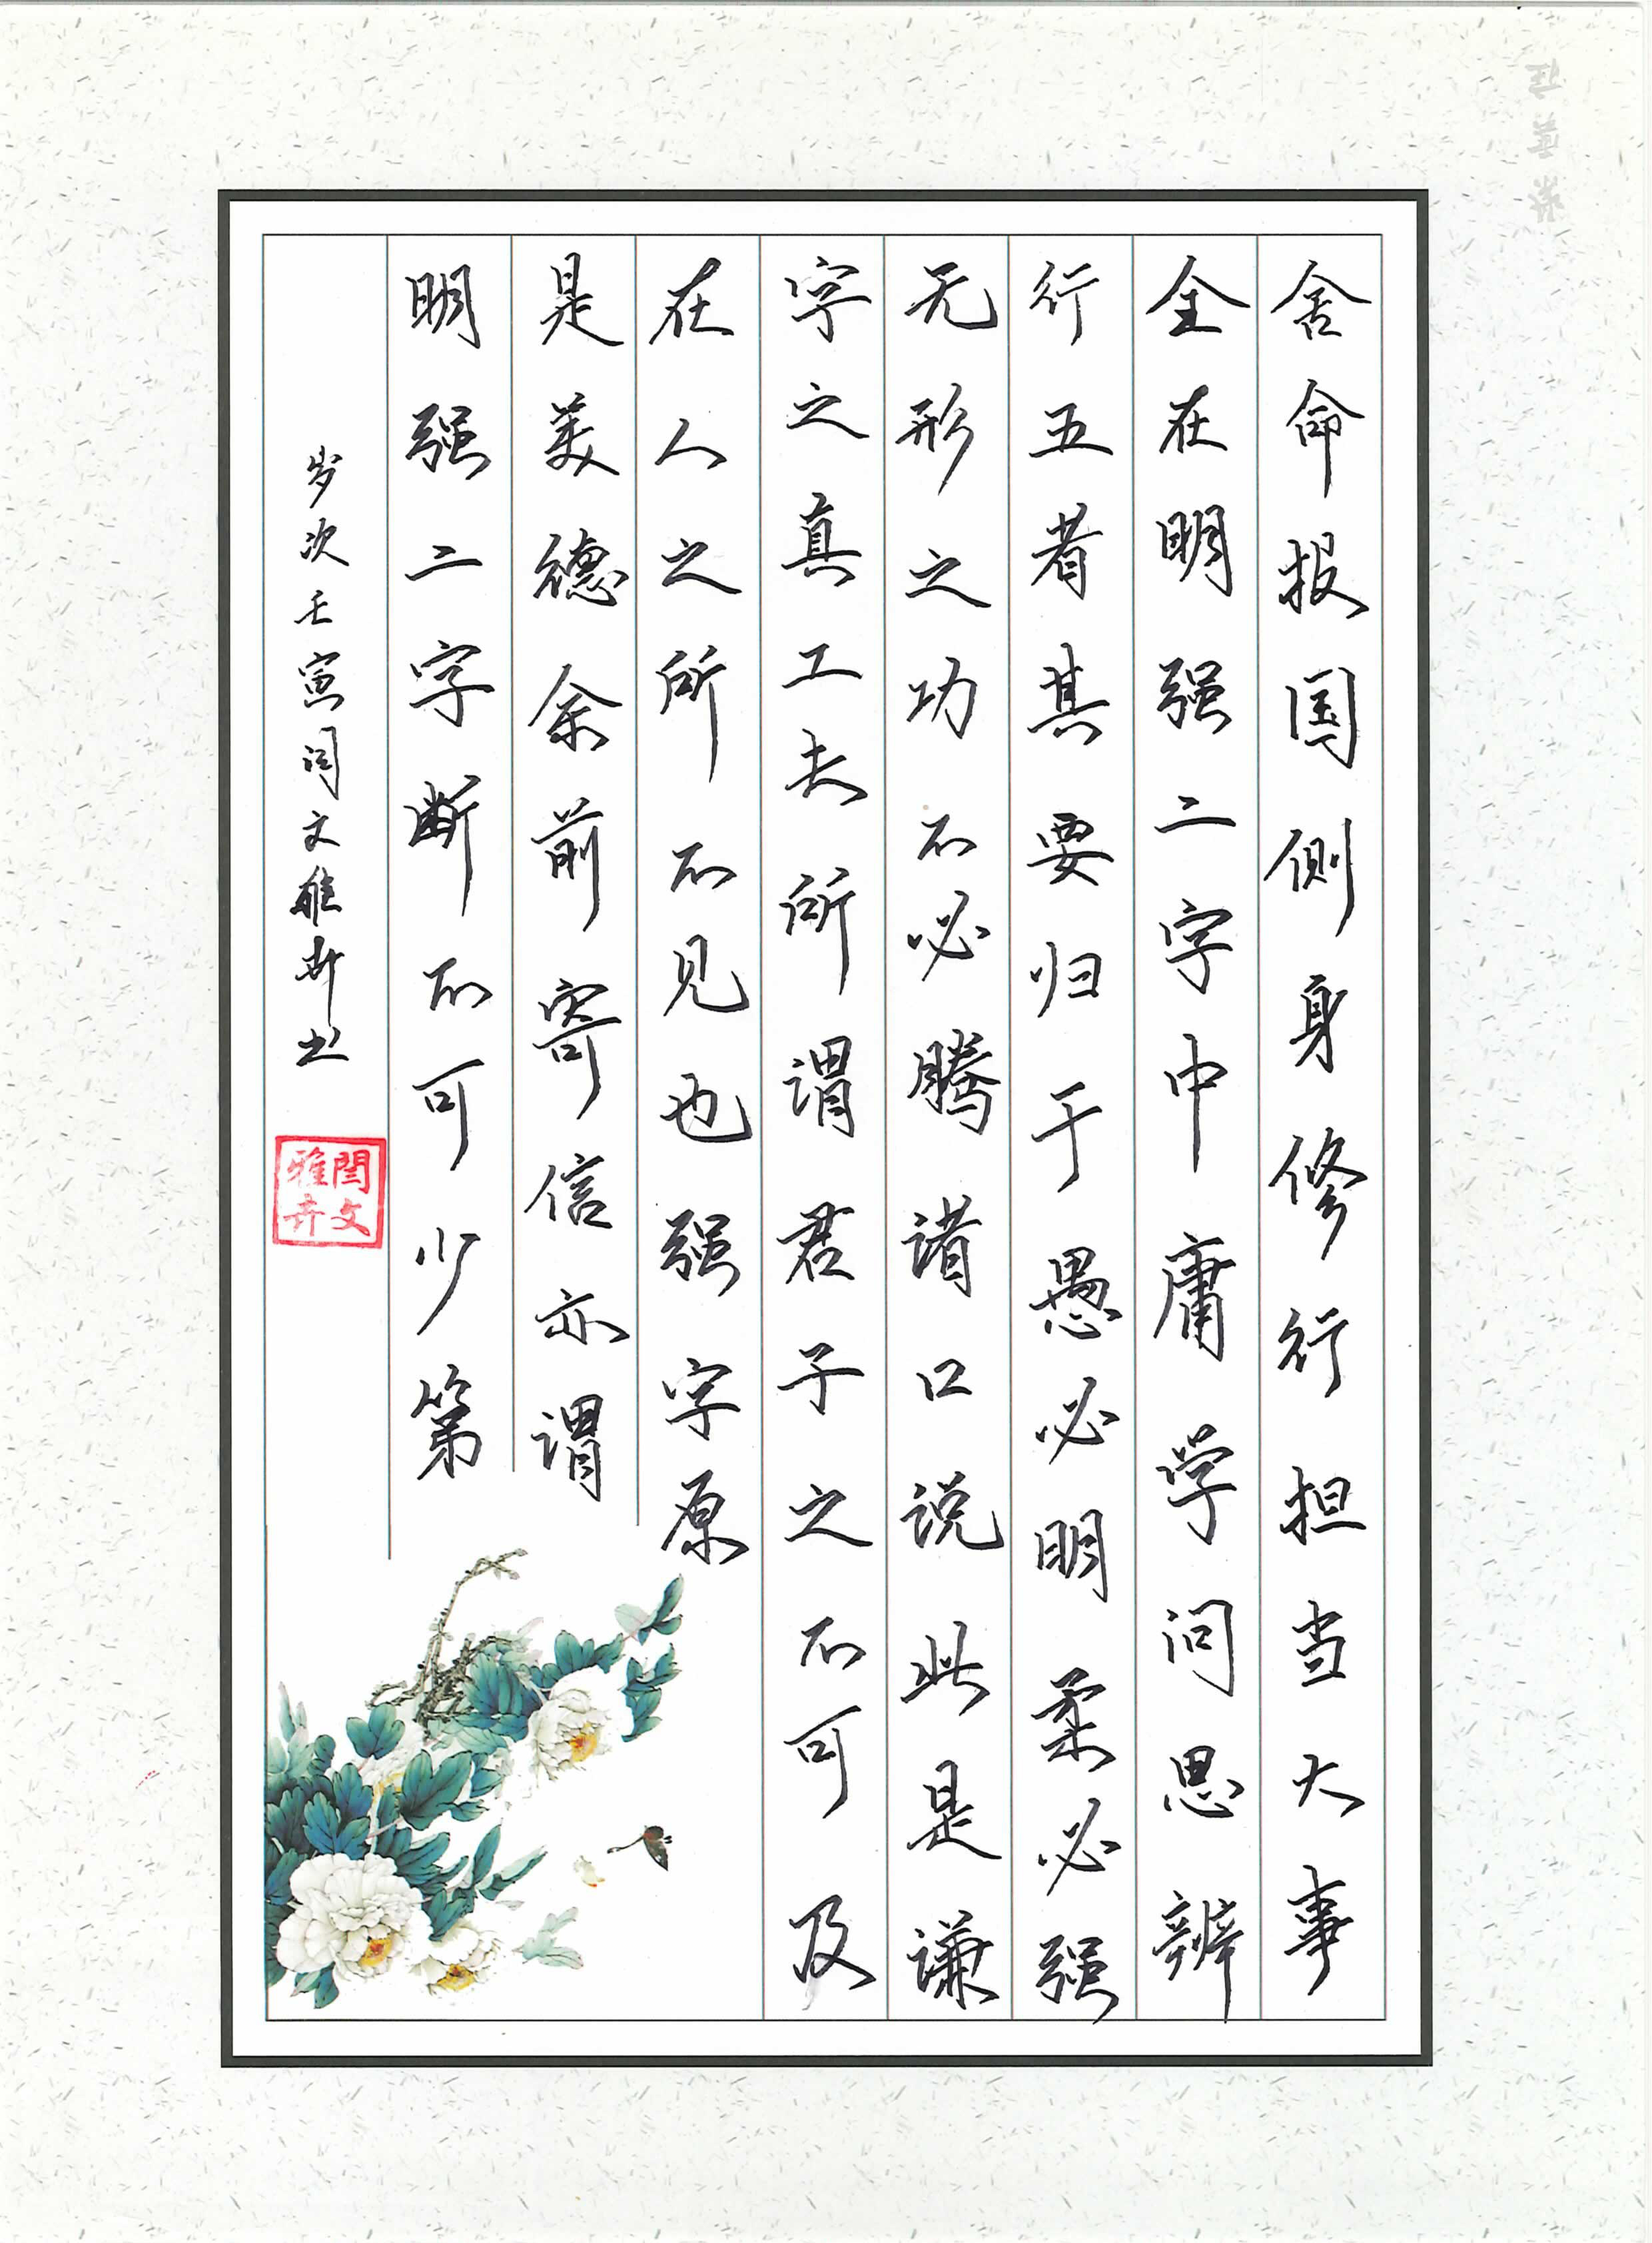 舍命报国侧身修行担当大事
全在明强二字中庸学问思辨
行五者其要归于愚必明柔必强
无形之功不必腾诸口说此是谦
字之真工夫所谓君子之不可及
在人之所不见也强字原
是美德余前寄信亦谓
明强二字断不可少第
岁次壬寅闫文雅卉书
閆文
雅卉